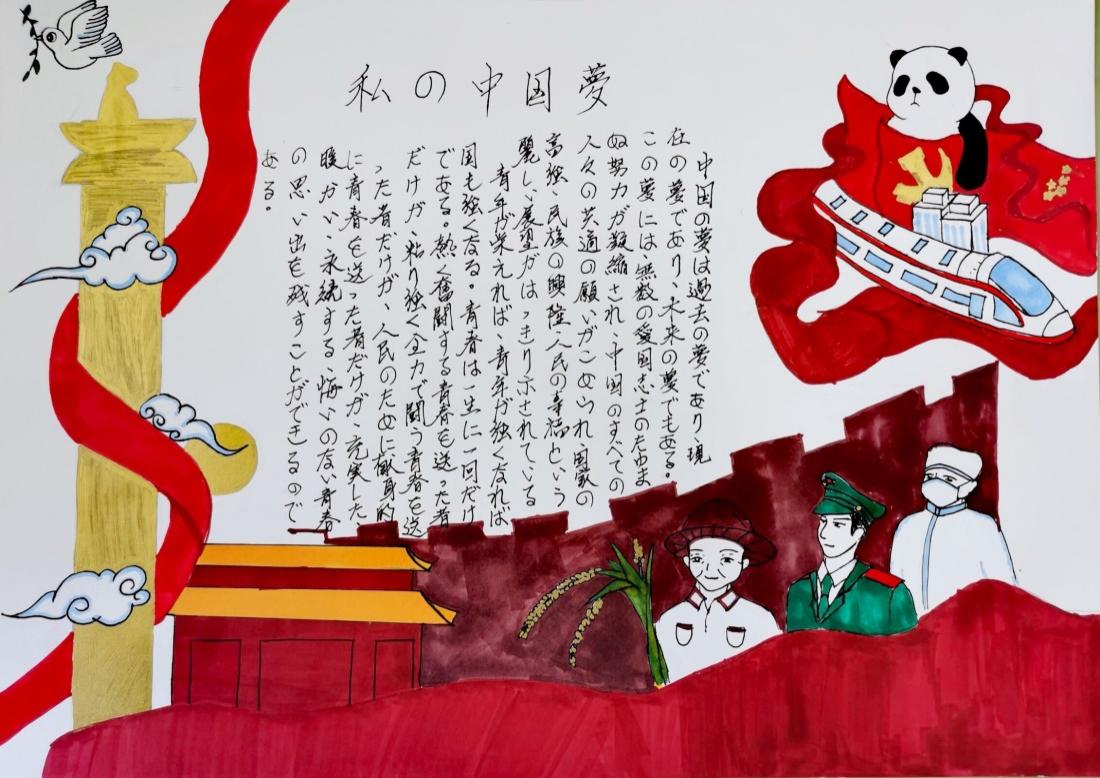 私の中国夢
中国の夢は過去の夢であり、現
在の夢であり、未来の夢でもある。
この夢には、無数の愛国志士のたゆま
ぬ努力が凝縮され、中国のすべての
人々の共通の願いがこめられ国家の
富強、民族の興隆人民の幸福という
麗しい展望がはっきり示されている
青年が栄えれば、青年が強くなれば
国も強くなる。青春は一生に一回だけ
である。熱く奮闘する青春を送った者
だけが、粘り強く全力で闘う青春を送
った者だけが、人民のために献身的
に青春を送った者だけが、充実した、
暖かい、永続する、悔いのない青春
の思い出を残すことができるので
ある。